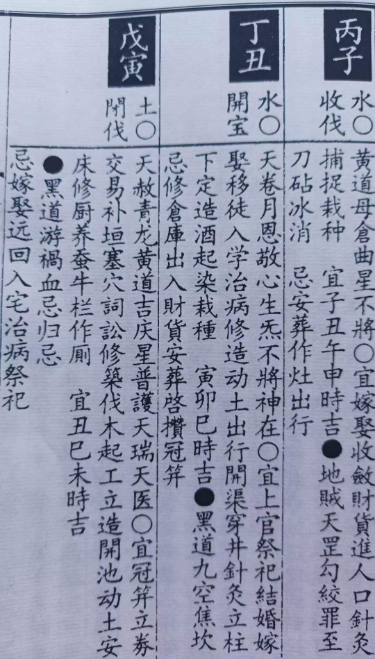 丙子
水〇
收伐
黄道母倉曲星不將〇宜嫁娶收斂財貨進人口針灸
捕捉栽种　宜子丑午申時吉●地贼天罡勾絞罪至
刀砧冰消　忌安葬作灶出行
丁丑
水〇
開宝
天卷月恩敬心生炁不將神在〇宜上官祭祀結婚嫁
娶移徒入学治病修造动土出行開渠穿井針灸立柱
下定造酒起染栽種　寅卯巳時吉●黑道九空焦坎
忌修倉庫出入財貨安葬啓攢冠笄
戊寅
土〇
閉伐
天赦青龙黄道吉庆星普護天瑞天医〇宜冠笄立券
交易补垣塞穴詞訟修築伐木起工立造開池动土安
床修厨养蚕牛栏作厠　宜丑巳未時吉
●黑道游禍血忌归忌
忌嫁娶远回入宅治病祭祀